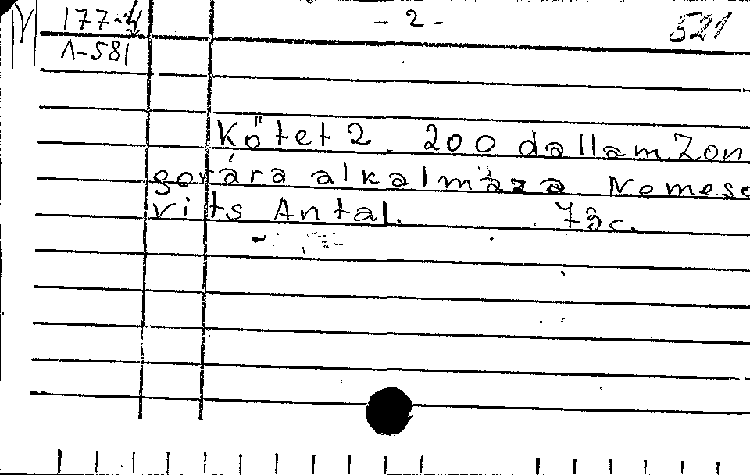 M 177-4 - 2 - 521
A-581
Kötet 2. 200 dallam Zon
gorára alkalmazá Nemeso
vits Antal. 73c.